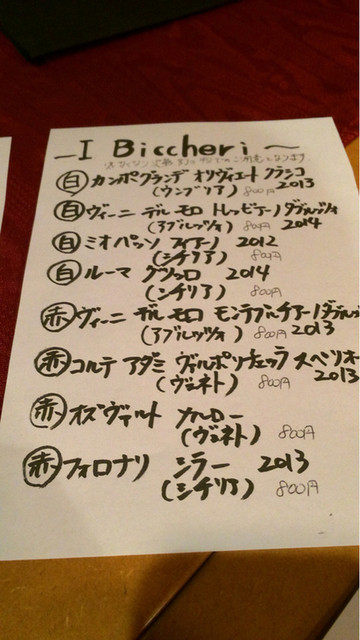 I Biccheri
白 カンポグランデ オルヴィエート クラシコ
(ウンブリア) 800円 2013
白 ヴィーニ デル モロ トレッビアーノダブルッツォ
(アブルッツォ) 800円 2014
白 ミオパッソ フィアーノ 2012
(シチリア) 800円
白 ルーマ グリッロ 2014
(シチリア) 800円
赤 ヴィーニ デル モロ モンテプルチアーノダブル
(アブルッツォ) 800円 2013
赤 コルテ アダミ ヴァルポリチェッラ スペリオー
(ヴェネト) 800円 2013
赤 オズヴァルト メルロー
(ヴェネト) 800円
赤 フォロナリ シラー 2013
(シチリア) 800円